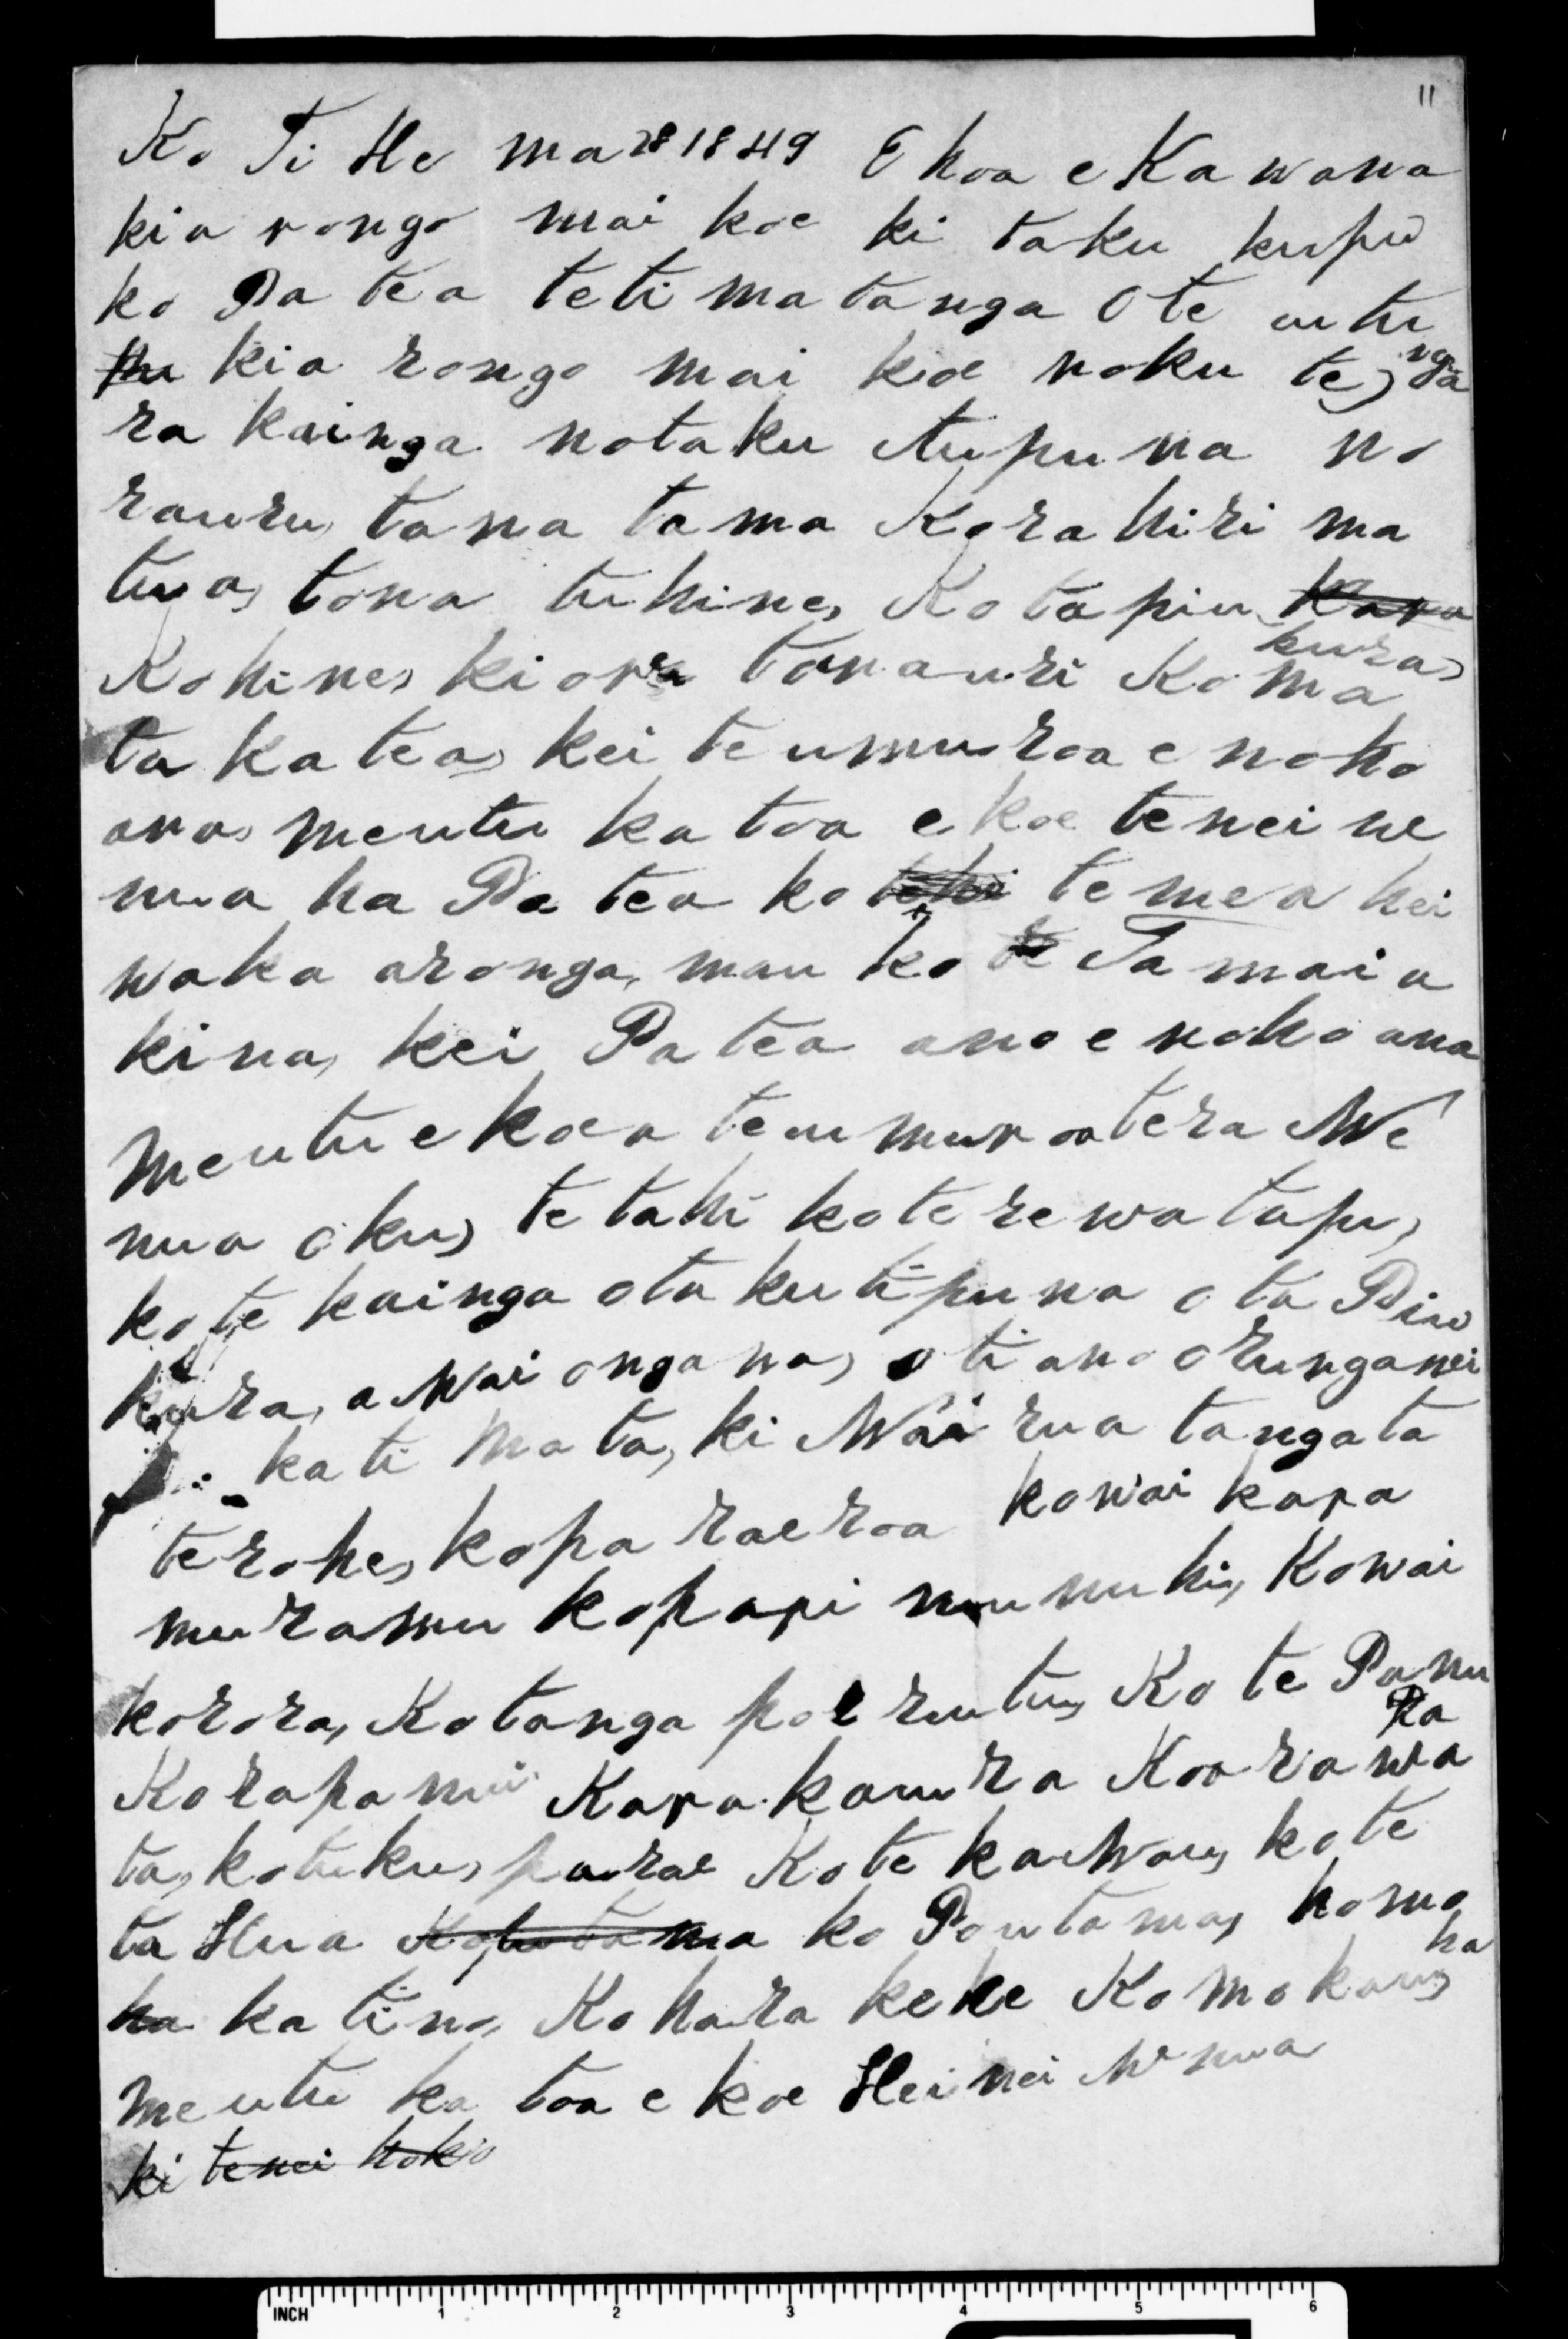 11
Ko Ti He ma 28 1849 E hoa e Kawana
kia rongo mai koe ki taku kupu
ko Pa tea te ti ma tanga O te utu
kia rongo mai koe noku te, nga
ra kainga no taku tupu na no
rauru, tana tama Ko ra hiri ma
tua, tona tuhine, Ko ta piu
kura,
Ko hine, kiore tona uri Ko ma
ta ka tea, kei te umuroa e noho
ana, me utu ka toa e koe te nei we
nua ha Pa tea ko te mea hei
waka aronga, mau ko Ta mai a
kina, kei Pa tea ano e noho ana
me utu e koe a te umuroa tera We
nua oku, te tahi ko te rewa tapu,
ko te kainga o ta ku tipu na o ta Piu
kura, a Wai ongana, o ti ano o runga nei
ka ti mata, ki Wai rua tangata
te rohe, ko pa rae roa ko wai kara
mu ramu ko papi nu nuhi, Ko wai
korora, Ko tanga poe rutu, Ko te Panu
Ra
Ko rapa nui Kara kaura Ko a rawa
ta, ko tuku, pu rae Ko te kawau, ko te
ta Hua ko Poutama, ko mo
ha
ka ti no, Ko hara keke Ko mo kau,
me utu ka toa e koe Hei nei We nua
ki